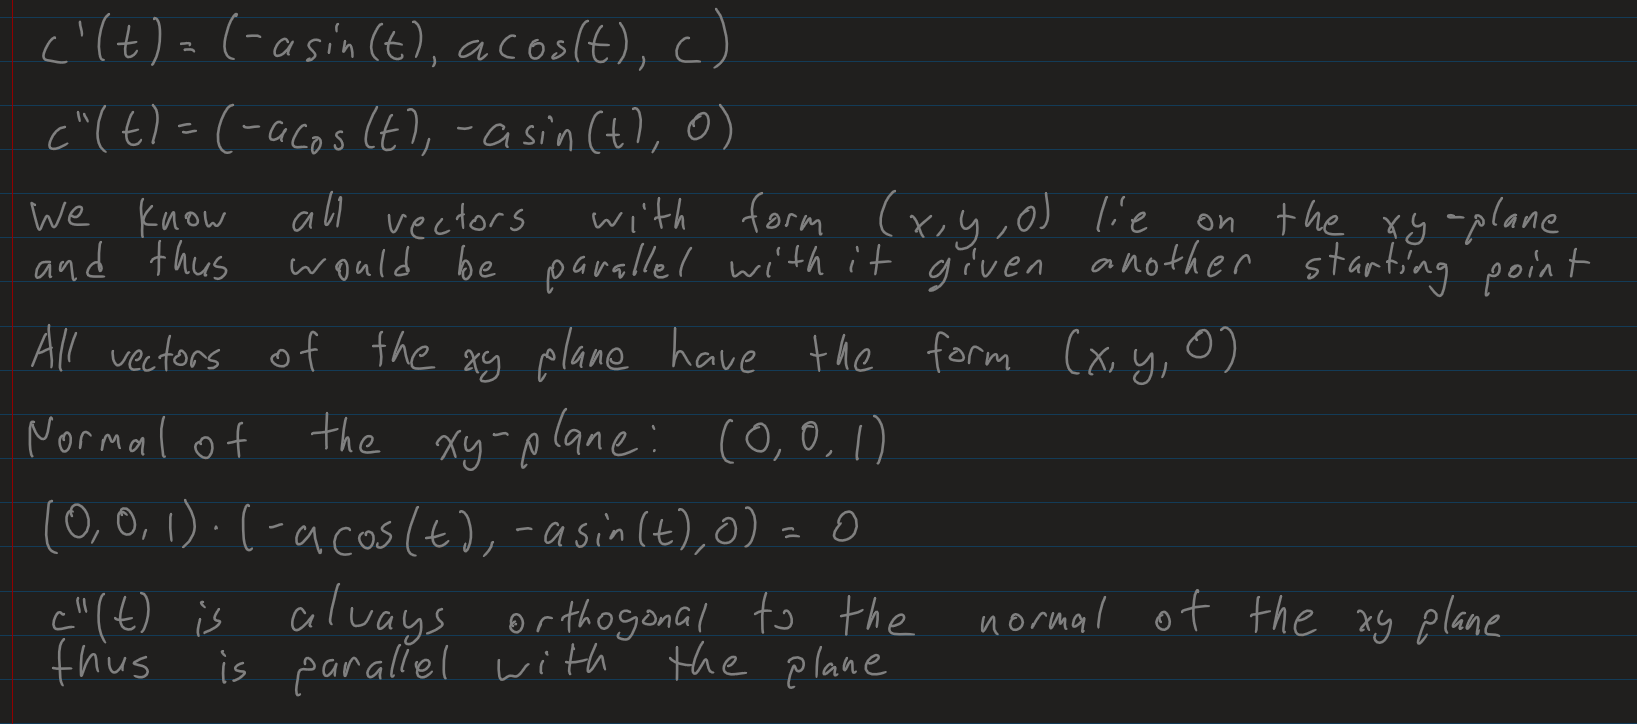 c'(t) = (-asin(t), acos(t), c)
c"(t) = (-acos(t), -asin(t), 0)
We know all vectors with form (x, y, 0) lie on the xy-plane
and thus would be parallel with it given another starting point
All vectors of the xy plane have the form (x, y, 0)
Normal of the xy-plane: (0, 0, 1)
(0, 0, 1) · (-acos(t), -asin(t), 0) = 0
c"(t) is always orthogonal to the normal of the xy plane
thus is parallel with the plane